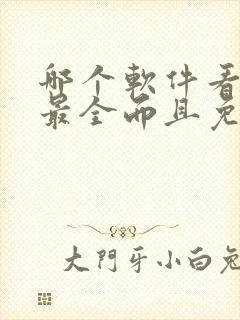 哪个軟件看
最全而且免
大門牙小白兔